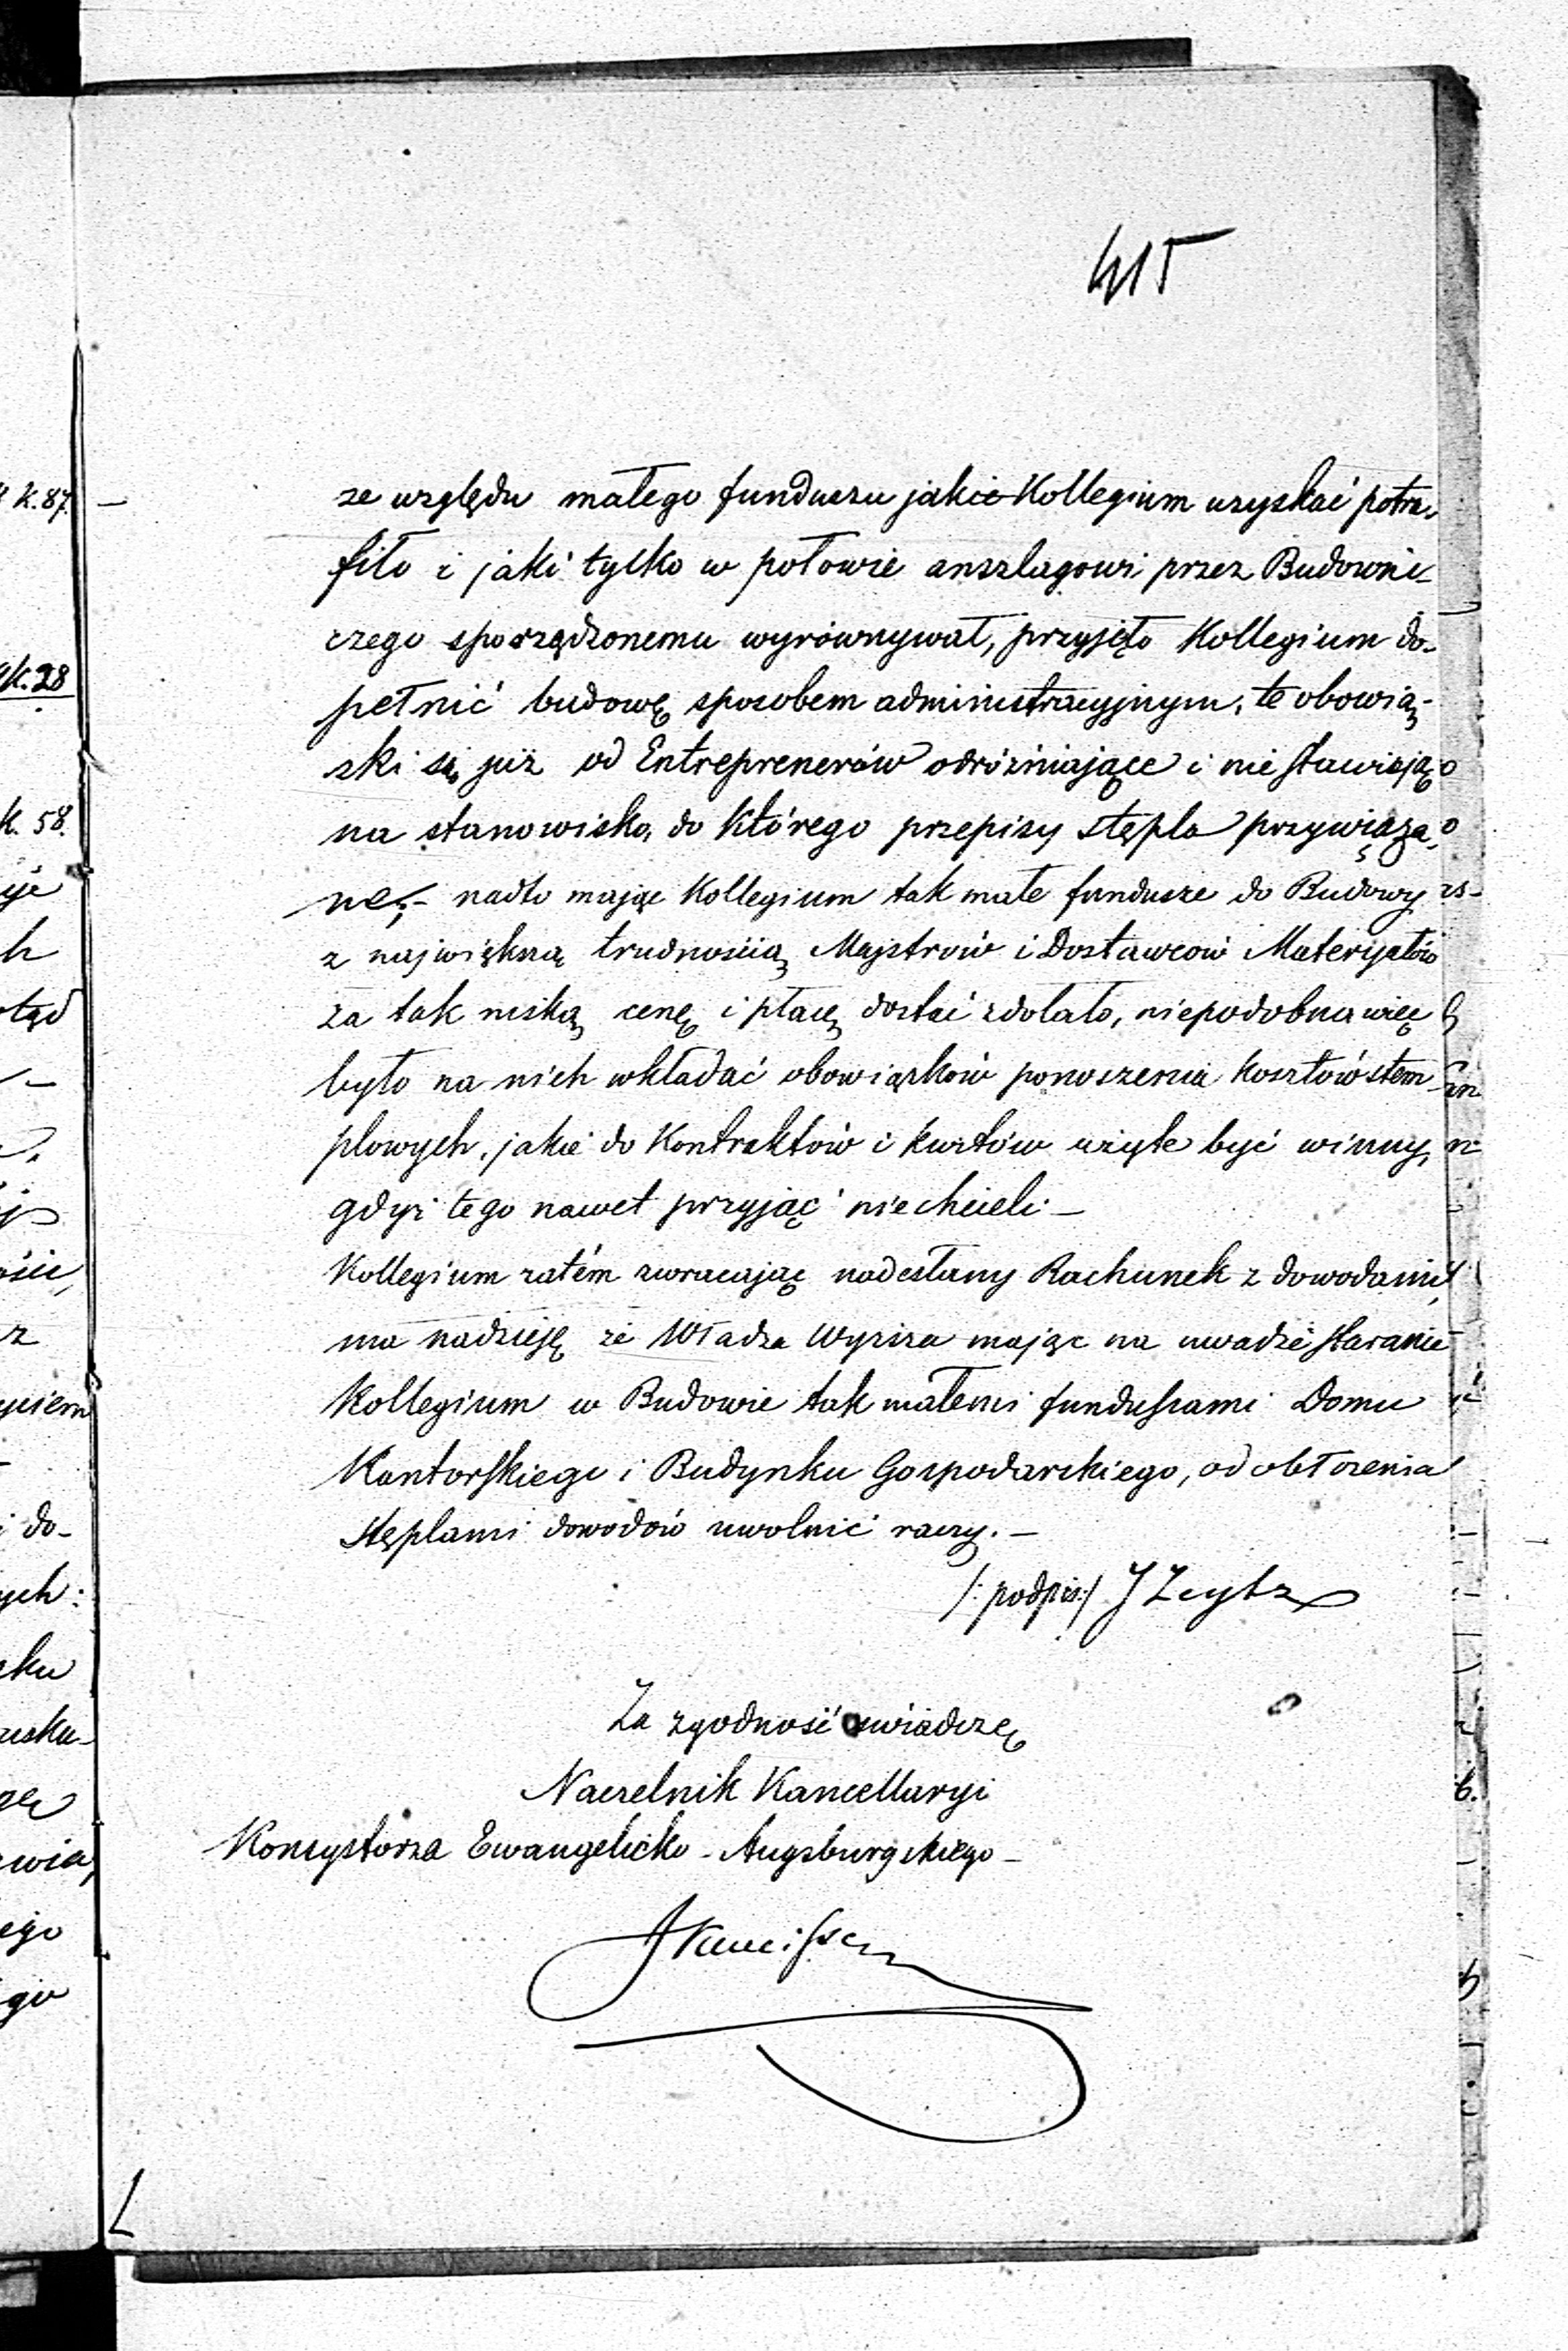 415
ze względu małego funduszu jakie Kollegium uzyskać potra-
fiło i jaki tylko w połowie anszlagowi przez Budowni-
czego sporządzonemu wyrównywał, przyjęło Kollegium do-
pełnić budowę sposobem administracyjnym, te obowią-
zki są już od Entreprenerów odróżniające i nie stawiają
na stanowisko, do którego przepisy stępla przywiąza-
ne,- nadto mając Kollegium tak małe fundusze do Budowy
z największą trudnością Majstrów i Dostawców Materyałów
za tak niską cenę i płacę dostać zdołało, niepodobna więc
było na nich wkładać obowiązków ponoszenia kosztów stem-
plowych, jakie do Kontraktów i kwitów użyte być winny,
gdyż tego nawet przyjąć niechcieli -
Kollegium zatém zwracając nadesłany Rachunek z dowodami,
ma nadzieję że Władza Wyższa mając na uwadze staranie
Kollegium w Budowie tak małemi funduszami Domu
Kantorskiego i Budynku Gospodarskiego, od obłożenia
stęplami dowodów uwolnić raczy. -
/: podpis :/ J Zeybz
Za zgodność świadczę
Naczelnik Kancellaryi
Konsystorza Ewangelicko - Augsburgskiego -